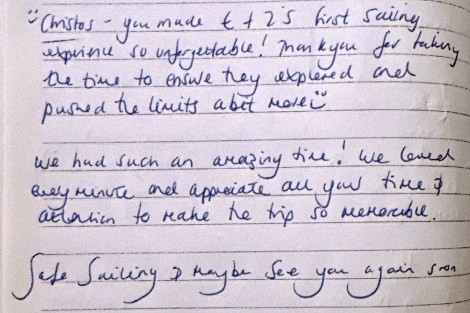 Christos - you made E + Z's first sailing
experience so unforgettable! Thank you for taking
the time to ensure they explored and
pushed the limits a bit more
We had such an amazing time! We loved
every minute and appreciate all your time &
attention to make the trip so memorable.
Safe Sailing & maybe see you again soon